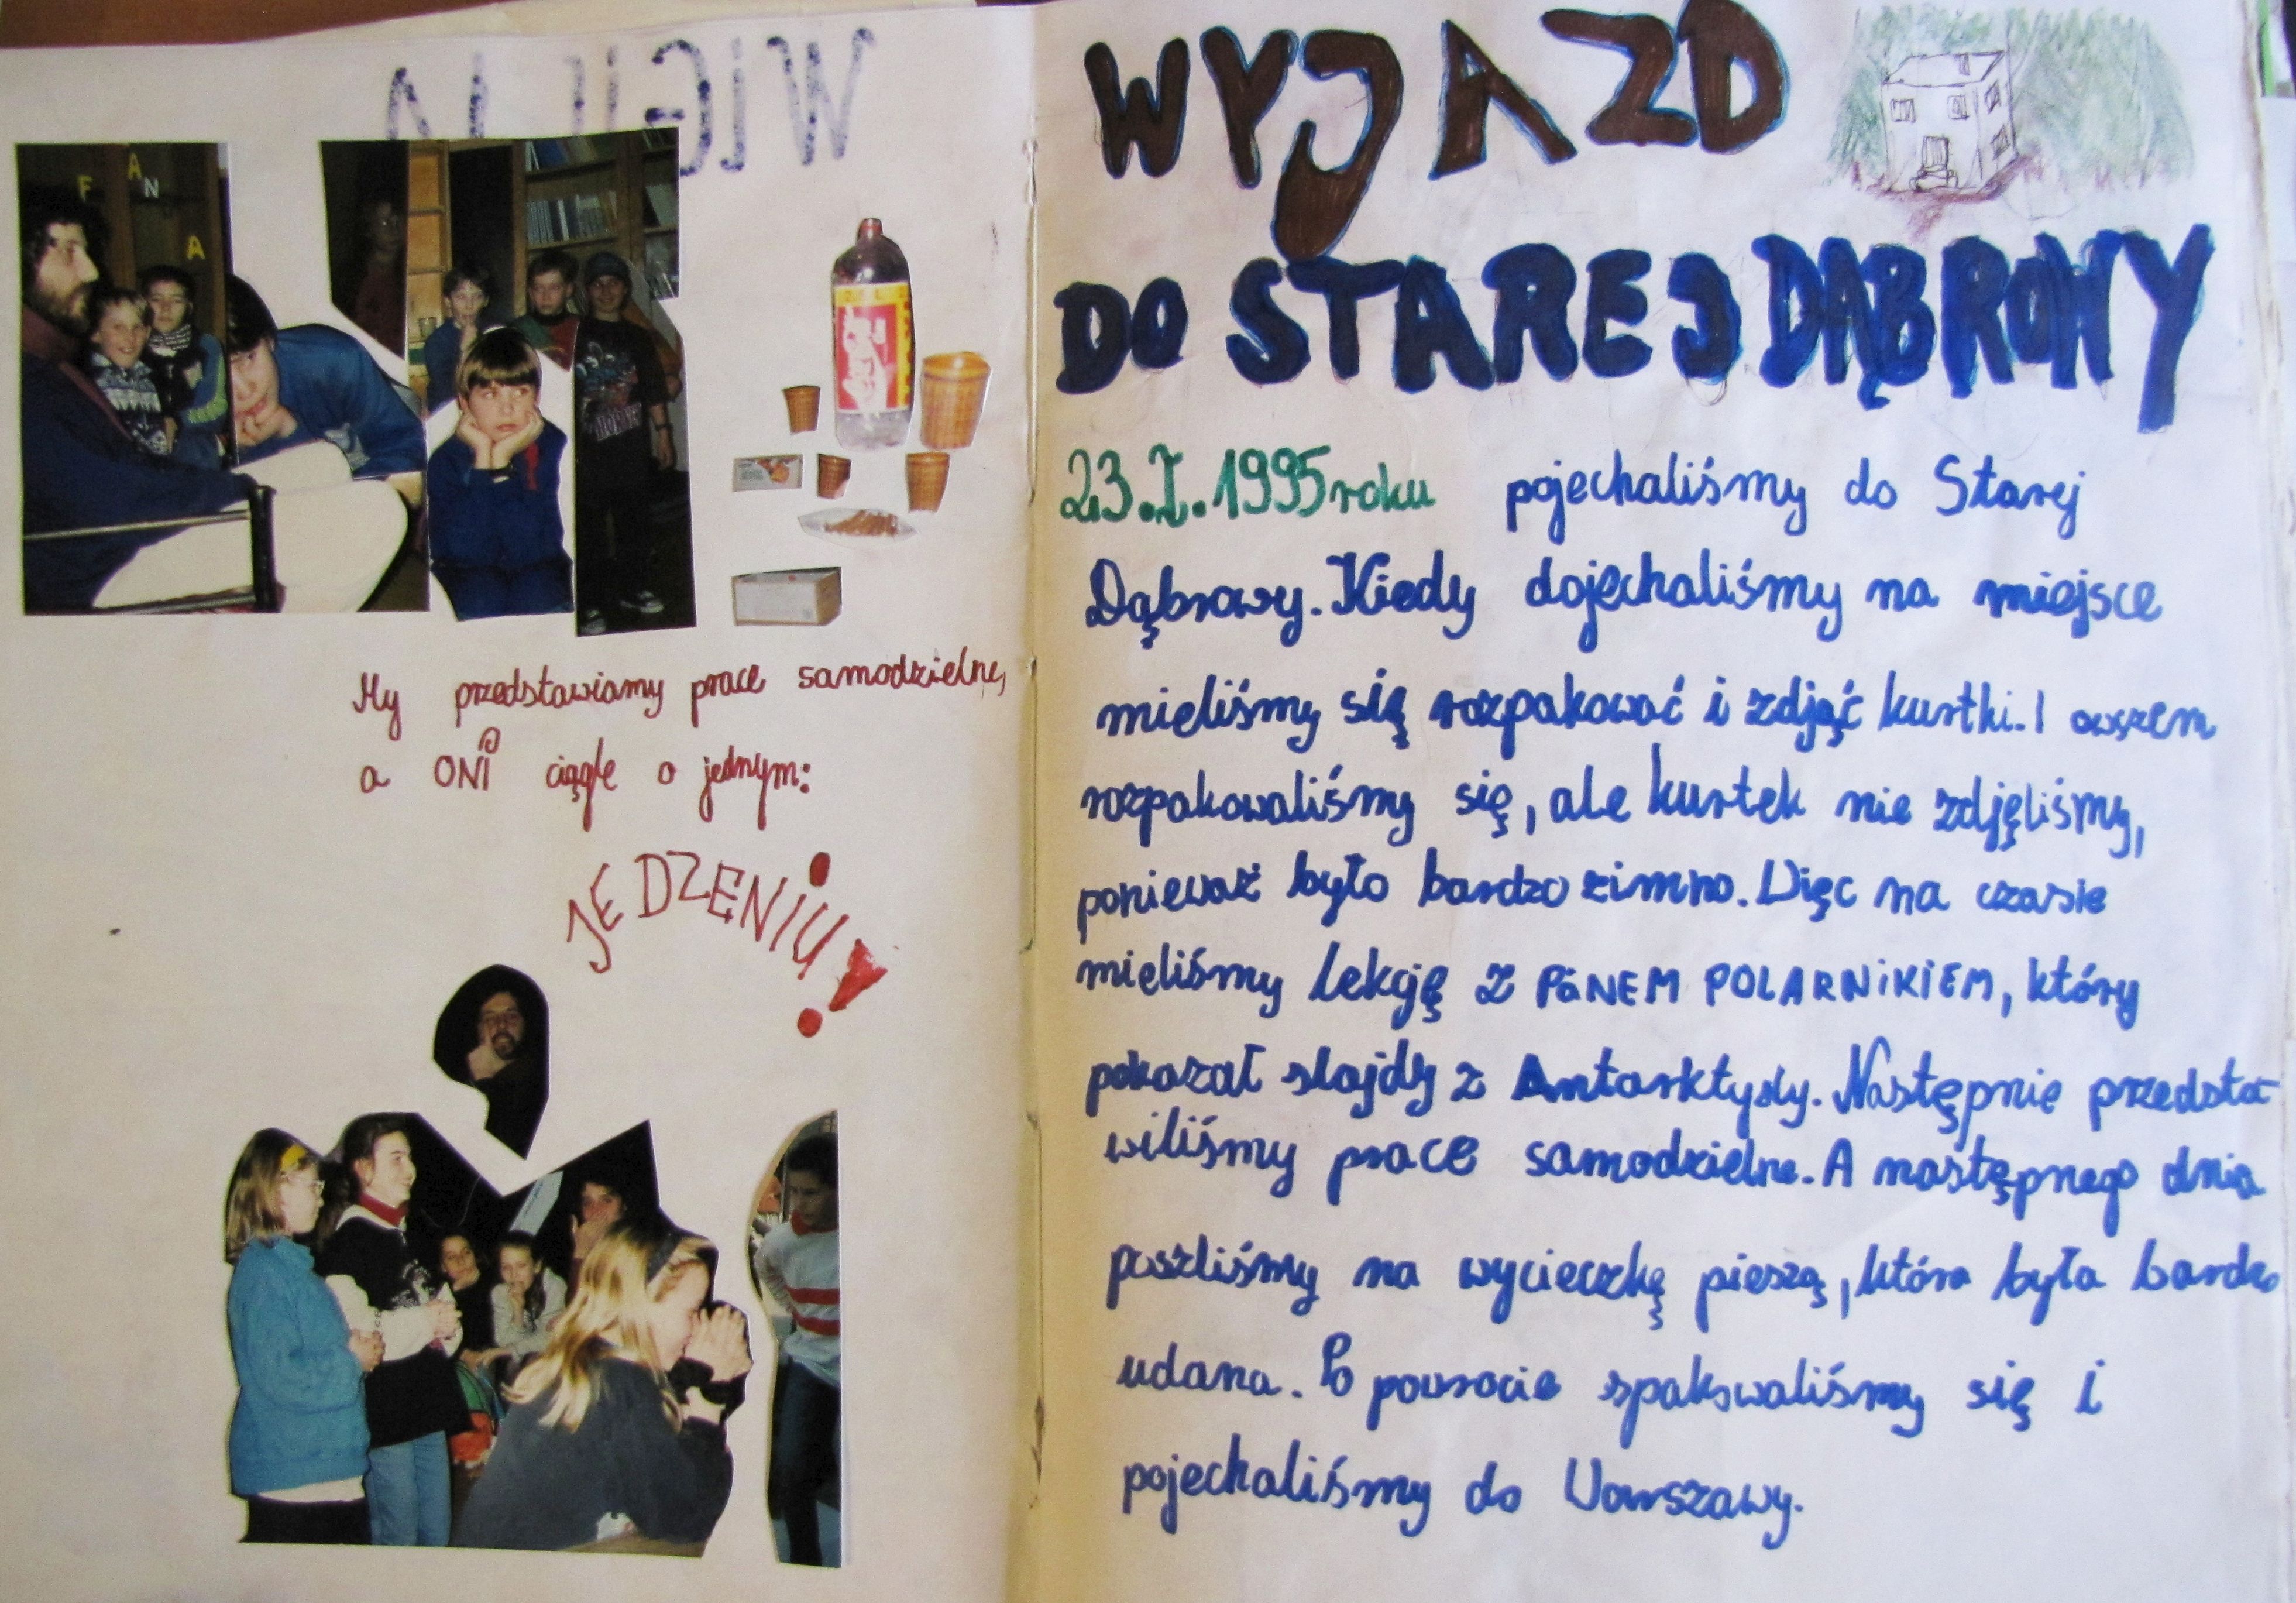 F A N A
My przedstawiamy prace samodzielne,
a ONI ciągle o jednym:
JEDZENIU!
WYJAZD
DO STAREJ DĄBROWY
23.I.1995 roku pojechaliśmy do Starej
Dąbrowy. Kiedy dojechaliśmy na miejsce
mieliśmy się rozpakować i zdjąć kurtki. I owszem
rozpakowaliśmy się, ale kurtek nie zdjęliśmy,
ponieważ było bardzo zimno. Więc na czasie
mieliśmy lekcję z PANEM POLARNIKIEM, który
pokazał slajdy z Antarktydy. Następnie przedsta
wiliśmy prace samodzielne. A następnego dnia
poszliśmy na wycieczkę pieszą, która była bardzo
udana. Po powrocie spakowaliśmy się i
pojechaliśmy do Warszawy.